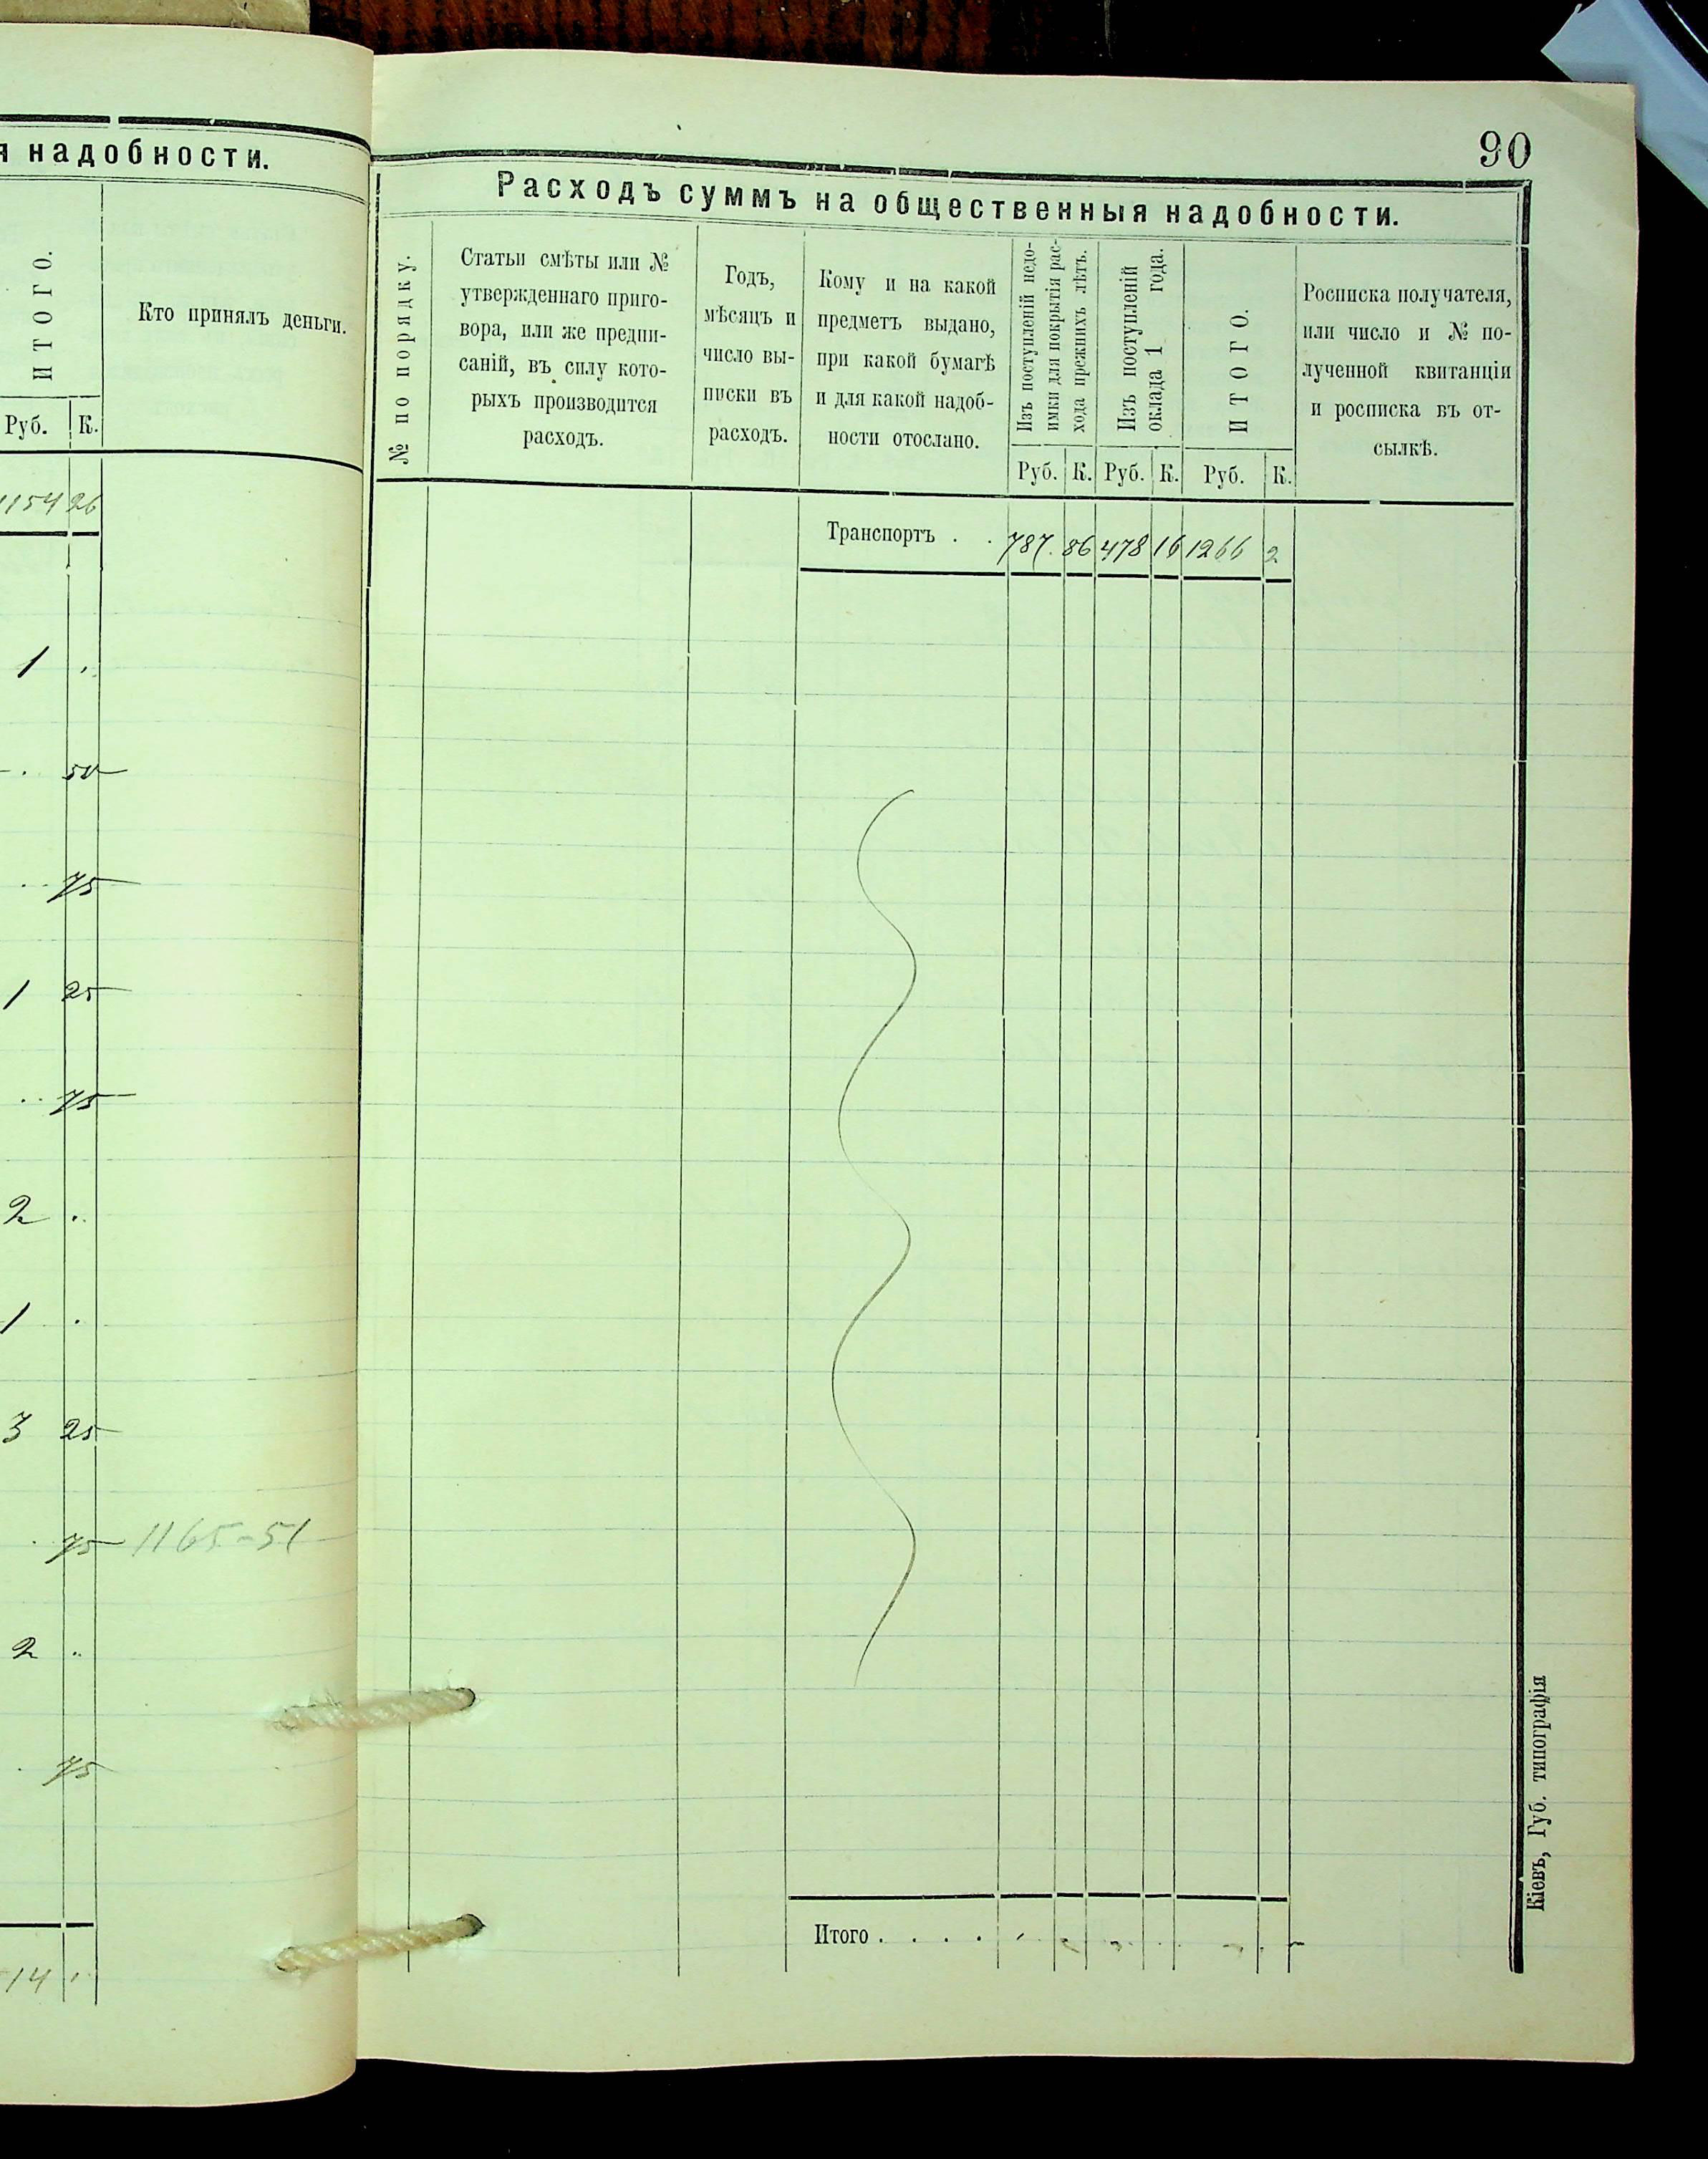 я надобности.
ИТОГО.
Кто принялъ деньги.
Руб. К.
1154 26
1 .
. 50
. . 75
1 25
. . 75
2 .
1 .
3 25
. 75 1165-51
2 .
. 75
14
90
Расходъ суммъ на общественныя надобности.
№ по порядку.
Статьи смѣты или №
утвержденнаго приго-
вора, или же предпи-
саній, въ силу кото-
рыхъ производится
расходъ.
Годъ,
мѣсяцъ и
число вы-
писки въ
расходъ.
Кому и на какой
предметъ выдано,
при какой бумагѣ
и для какой надоб-
ности отослано.
Изъ поступленій недо-
имки для покрытія рас-
хода прежнихъ лѣтъ.
Изъ поступленій
оклада 1 года.
ИТОГО.
Росписка получателя,
или число и № по-
лученной квитанціи
и росписка въ от-
сылкѣ.
Руб. К. Руб. К. Руб. К.
Транспортъ . . 787. 86 478 16 1266 2
Итого . . . . .
Кіевъ, Губ. типографія